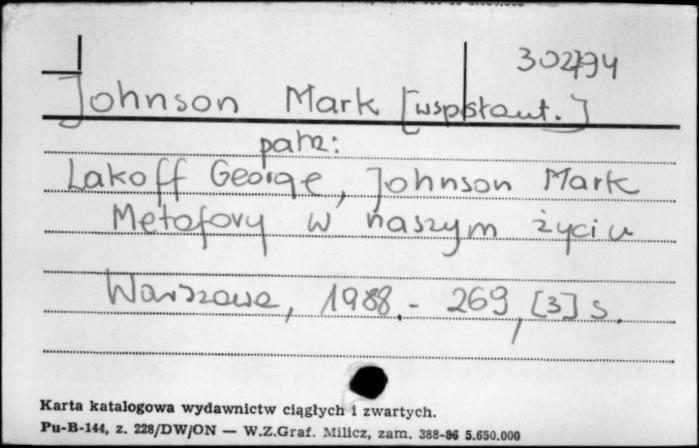 302/94
Johnson Mark [współaut.]
patrz:
Lakoff George, Johnson Mark
Metafory w naszym życiu
Warszawa, 1988.- 269, [3] s.
Karta katalogowa wydawnictw ciągłych i zwartych.
Pu-B-144, z. 228/DW/ON — W.Z.Graf. Milicz, zam. 388-86 5.650.000